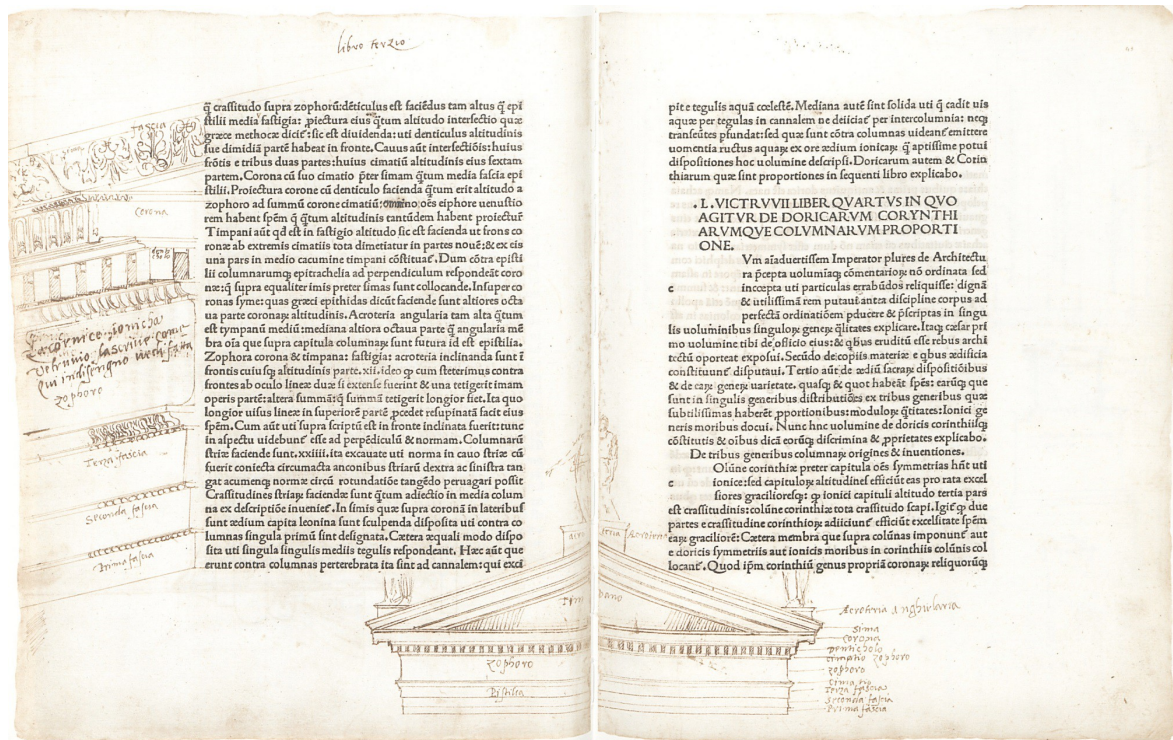 libro terzo
q̃ crassitudo supra zophorũ:dẽticulus est faciẽdus tam altus q̃ epi
stilii media fastigia: ꝓiectura eius q̃tum altitudo intersectio quæ
græce methocæ dicit̃: sic est diuidenda: uti denticulus altitudinis
suæ dimidiã partẽ habeat in fronte. Cauus aũt intersectiõis: huius
frõtis e tribus duas partes: huius cimatiũ altitudinis eius sextam
partem. Corona cũ suo cimatio p̃ter simam q̃tum media fascia epi
stilii. Proiectura corone cũ denticulo facienda q̃tum erit altitudo a
zophoro ad summũ corone cimatiũ: omnino oẽs eiphore uenustio
rem habent spẽm q̃ q̃tum altitudinis tantũdem habent proiecturẽ
Timpani aũt qđ est in fastigio altitudo sic est facienda ut frons co
ronæ ab extremis cimatiis tota dimetiatur in partes nouẽ: & ex eis
una pars in medio cacumine timpani cõstituat̃. Dum cõtra episti
lii columnarumꝗ epitrachelia ad perpendiculum respondeãt coro
næ: q̃ supra equaliter imis preter simas sunt collocande. Insuper co
ronas syme: quas græci epithidas dicũt faciende sunt altiores octa
ua parte coronaꝝ altitudinis. Acroteria angularia tam alta q̃tum
est tympanũ mediũ: mediana altiora octaua parte q̃ angularia mẽ
bra oĩa que supra capitula columnaꝝ sunt futura id est epistilia.
Zophora corona & timpana: fastigia: acroteria inclinanda sunt ĩ
frontis cuiusꝗ altitudinis parte. xii. ideo ꝙ cum steterimus contra
frontes ab oculo lineæ duæ si extense fuerint & una tetigerit imam
operis partẽ: altera summã: q̃ summã tetigerit longior fiet. Ita quo
longior uisus lineæ in superiorẽ partẽ ꝓcedet resupinatã facit eius
spẽm. Cum aũt uti supra scriptũ est in fronte inclinata fuerit: tunc
in aspectu uidebunt̃ esse ad perpẽdiculũ & normam. Columnarũ
striæ faciende sunt. xxiiii. ita excauate uti norma in cauo striæ cũ
fuerit coniecta circumacta anconibus striarũ dextra ac sinistra tan
gat acumenꝗ normæ circũ rotundatiõe tangẽdo peruagari possit
Crassitudines striaꝝ faciendæ sunt q̃tum adiectio in media colum
na ex descriptiõe inueniet̃. In simis quæ supra coronã in lateribus
sunt ædium capita leonina sunt sculpenda disposita uti contra co
lumnas singula primũ sint designata. Cætera æquali modo dispo
sita uti singula singulis mediis tegulis respondeant. Hæc aũt que
erunt contra columnas perterebrata ita sint ad cannalem: qui exci
fascia
Corona
La cornice ionicha
zophoro
Terza fascia
Seconda fascia
Prima fascia
zophoro
Pistilia
pit e tegulis aquã cœlestẽ. Mediana autẽ sint solida uti q̃ cadit uis
aquæ per tegulas in cannalem ne deiiciat̃ per intercolumnia: neꝗ
transeũtes ꝑfundat: sed quæ sunt cõtra columnas uideant̃ emittere
uomentia ructus aquaꝝ ex ore ædium ionicaꝝ q̃ aptissime potui
dispositiones hoc uolumine descripsi. Doricarum autem & Corin
thiarum quæ sint proportiones in sequenti libro explicabo.
. L. VICTRVVII LIBER QVARTVS IN QVO
AGITVR DE DORICARVM CORYNTHI
ARVMQVE COLVMNARVM PROPORTI
ONE.
Vm aĩaduertissem Imperator plures de Architectu
ra p̃cepta uolumĩaꝗ cõmentarioꝝ nõ ordinata sed
c incœpta uti particulas errabũdos reliquisse: dignã
& utilissimã rem putaui antea discipline corpus ad
perfectã ordinatiõem ꝑducere & p̃scriptas in singu
lis uoluminibus singuloꝝ geneꝝ q̃litates explicare. Itaꝗ cæsar pri
mo uolumine tibi de officio eius: & qbus eruditũ esse rebus archi
tectũ oporteat exposui. Secũdo de copiis materiæ e qbus ædificia
constituunt̃ disputaui. Tertio aũt de ædiũ sacraꝝ dispositiõibus
& de eaꝝ geneꝝ uarietate. quasꝗ & quot habeãt spẽs: earũꝗ que
sunt in singulis generibus distributiões ex tribus generibus quæ
subtilissimas haberẽt ꝓportionibus: moduloꝝ q̃titates: Ionici ge
neris moribus docui. Nunc hoc uolumine de doricis corinthiisꝗ
cõstitutis & oĩbus dicã eorũꝗ discrimina & ꝓprietates explicabo.
De tribus generibus columnaꝝ origines & inuentiones.
Olũne corinthiæ preter capitula oẽs symmetrias hñt uti
c ionice: sed capituloꝝ altitudines efficiũt eas pro rata excel
siores gracilioresꝗ: ꝙ ionici capituli altitudo tertia pars
est crassitudinis: colũne corinthiæ tota crassitudo scapi. Igit̃ ꝙ duę
partes e crassitudine corinthioꝝ adiiciunt̃ efficiũt excelsitate spẽm
eaꝝ graciliorẽ: Cætera membra que supra colũnas imponunt̃ aut
e doricis symmetriis aut ionicis moribus in corinthiis colũnis col
locant̃. Quod ip̃m corinthiũ genus propriã coronaꝝ reliquorũꝗ
Acroteria anghularia
sima
corona
denticholo
cimatio zophoro
zophoro
Cimatio
Terza fascia
Seconda fascia
Prima fascia